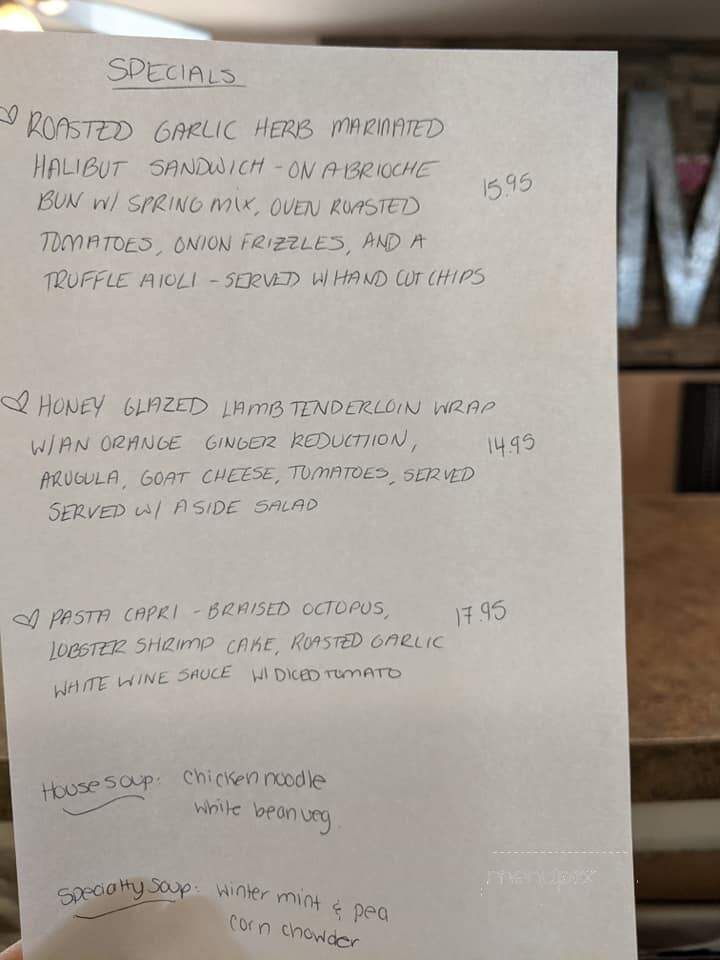 SPECIALS
ROASTED GARLIC HERB MARINATED
HALIBUT SANDWICH - ON A BRIOCHE
BUN W/ SPRING MIX, OVEN ROASTED
15.95
TOMATOES, ONION FRIZZLES, AND A
TRUFFLE AIOLI - SERVED W/ HAND CUT CHIPS
HONEY GLAZED LAMB TENDERLOIN WRAP
W/ AN ORANGE GINGER REDUCTIION,
14.95
ARUGULA, GOAT CHEESE, TOMATOES, SERVED
SERVED W/ A SIDE SALAD
PASTA CAPRI - BRAISED OCTOPUS,
17.95
LOBSTER SHRIMP CAKE, ROASTED GARLIC
WHITE WINE SAUCE W/ DICED TOMATO
House soup: chicken noodle
white bean veg
Specialty Soup: winter mint & pea
corn chowder
M